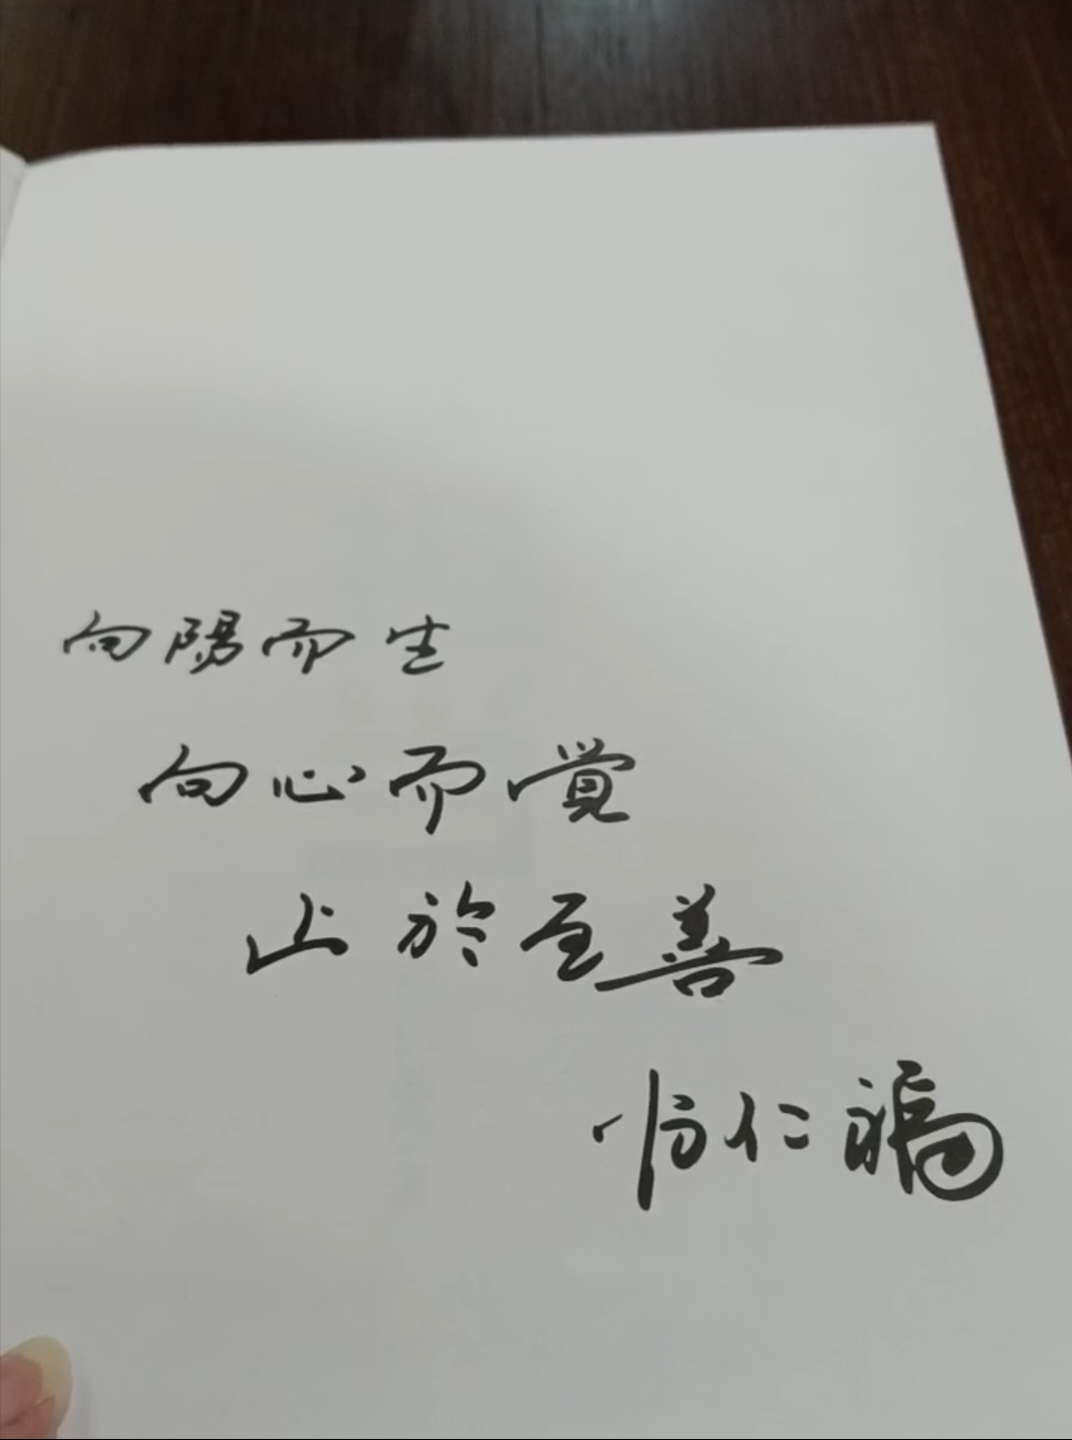 向陽而生
向心而覺
止於至善
仁福